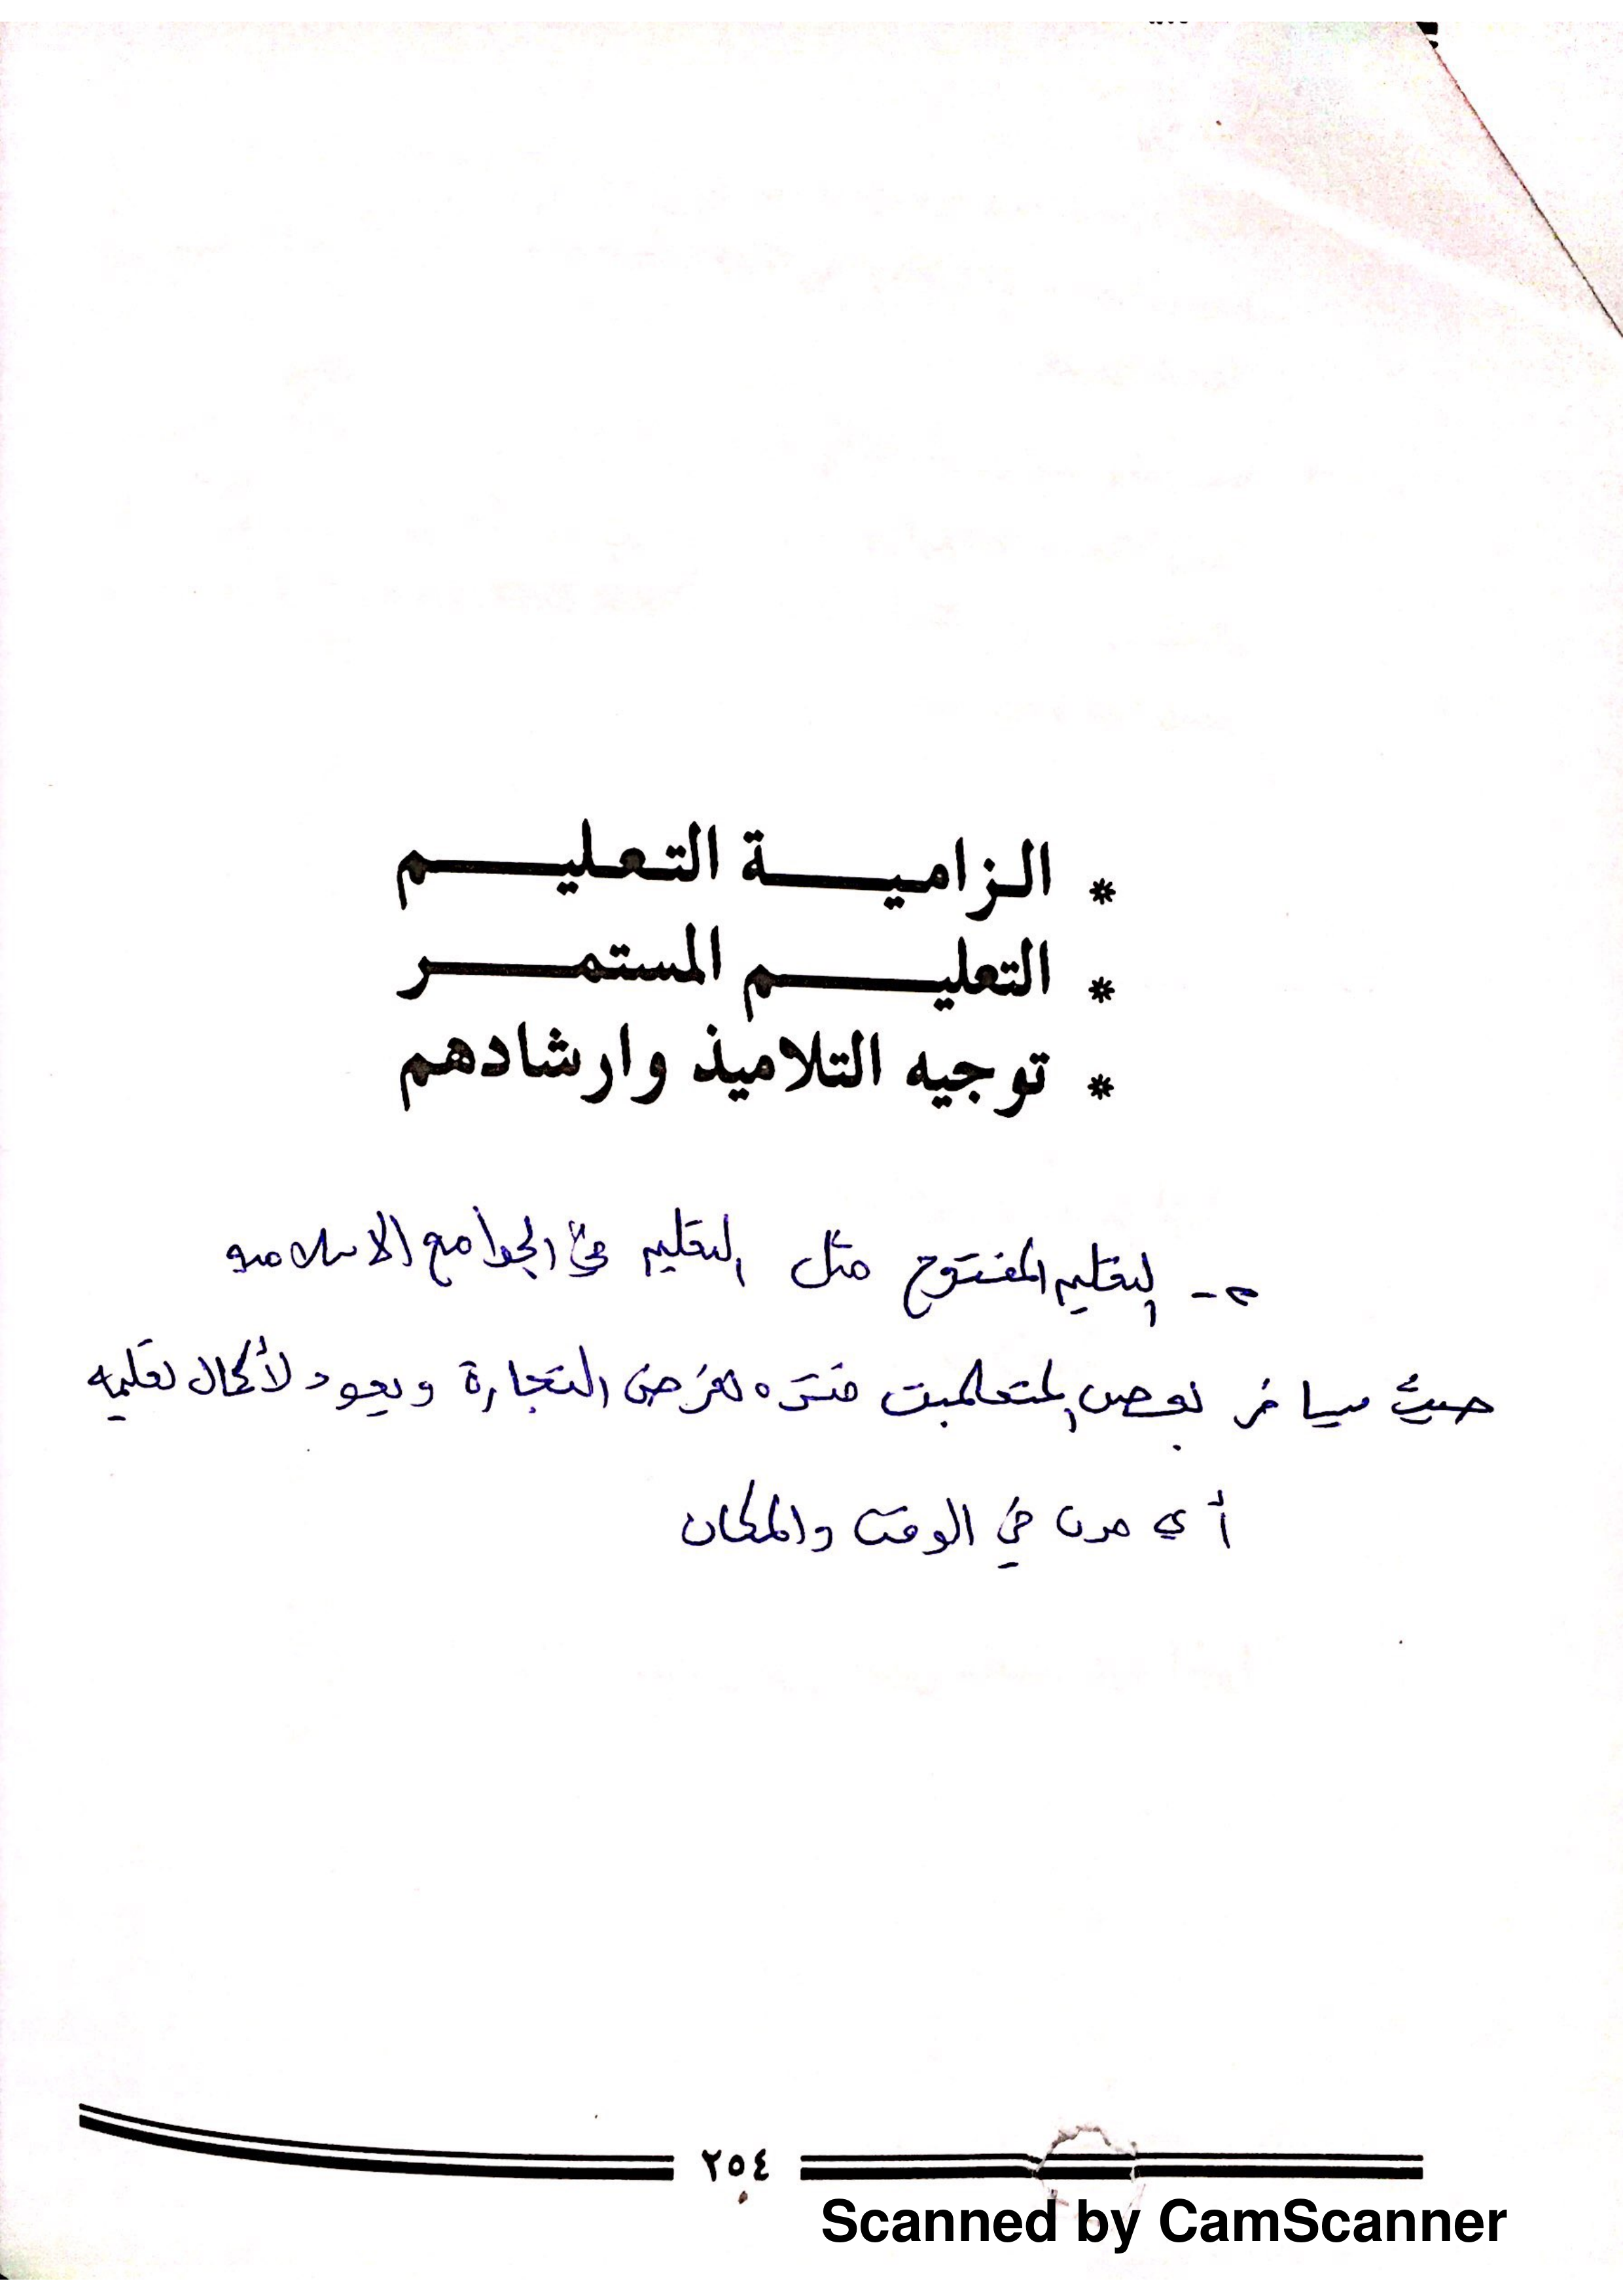 * الزامية التعليم
* التعليم المستمر
* توجيه التلاميذ وارشادهم
٢- التعليم المفتوح مثل التعليم في الجوامع الاسلاميه
حيث يسافر بعض المتعلمين فتره لغرض التجارة ويعود لأكمال تعليمه
أي مرن في الوقت والمكان
٢٥٤
Scanned by CamScanner